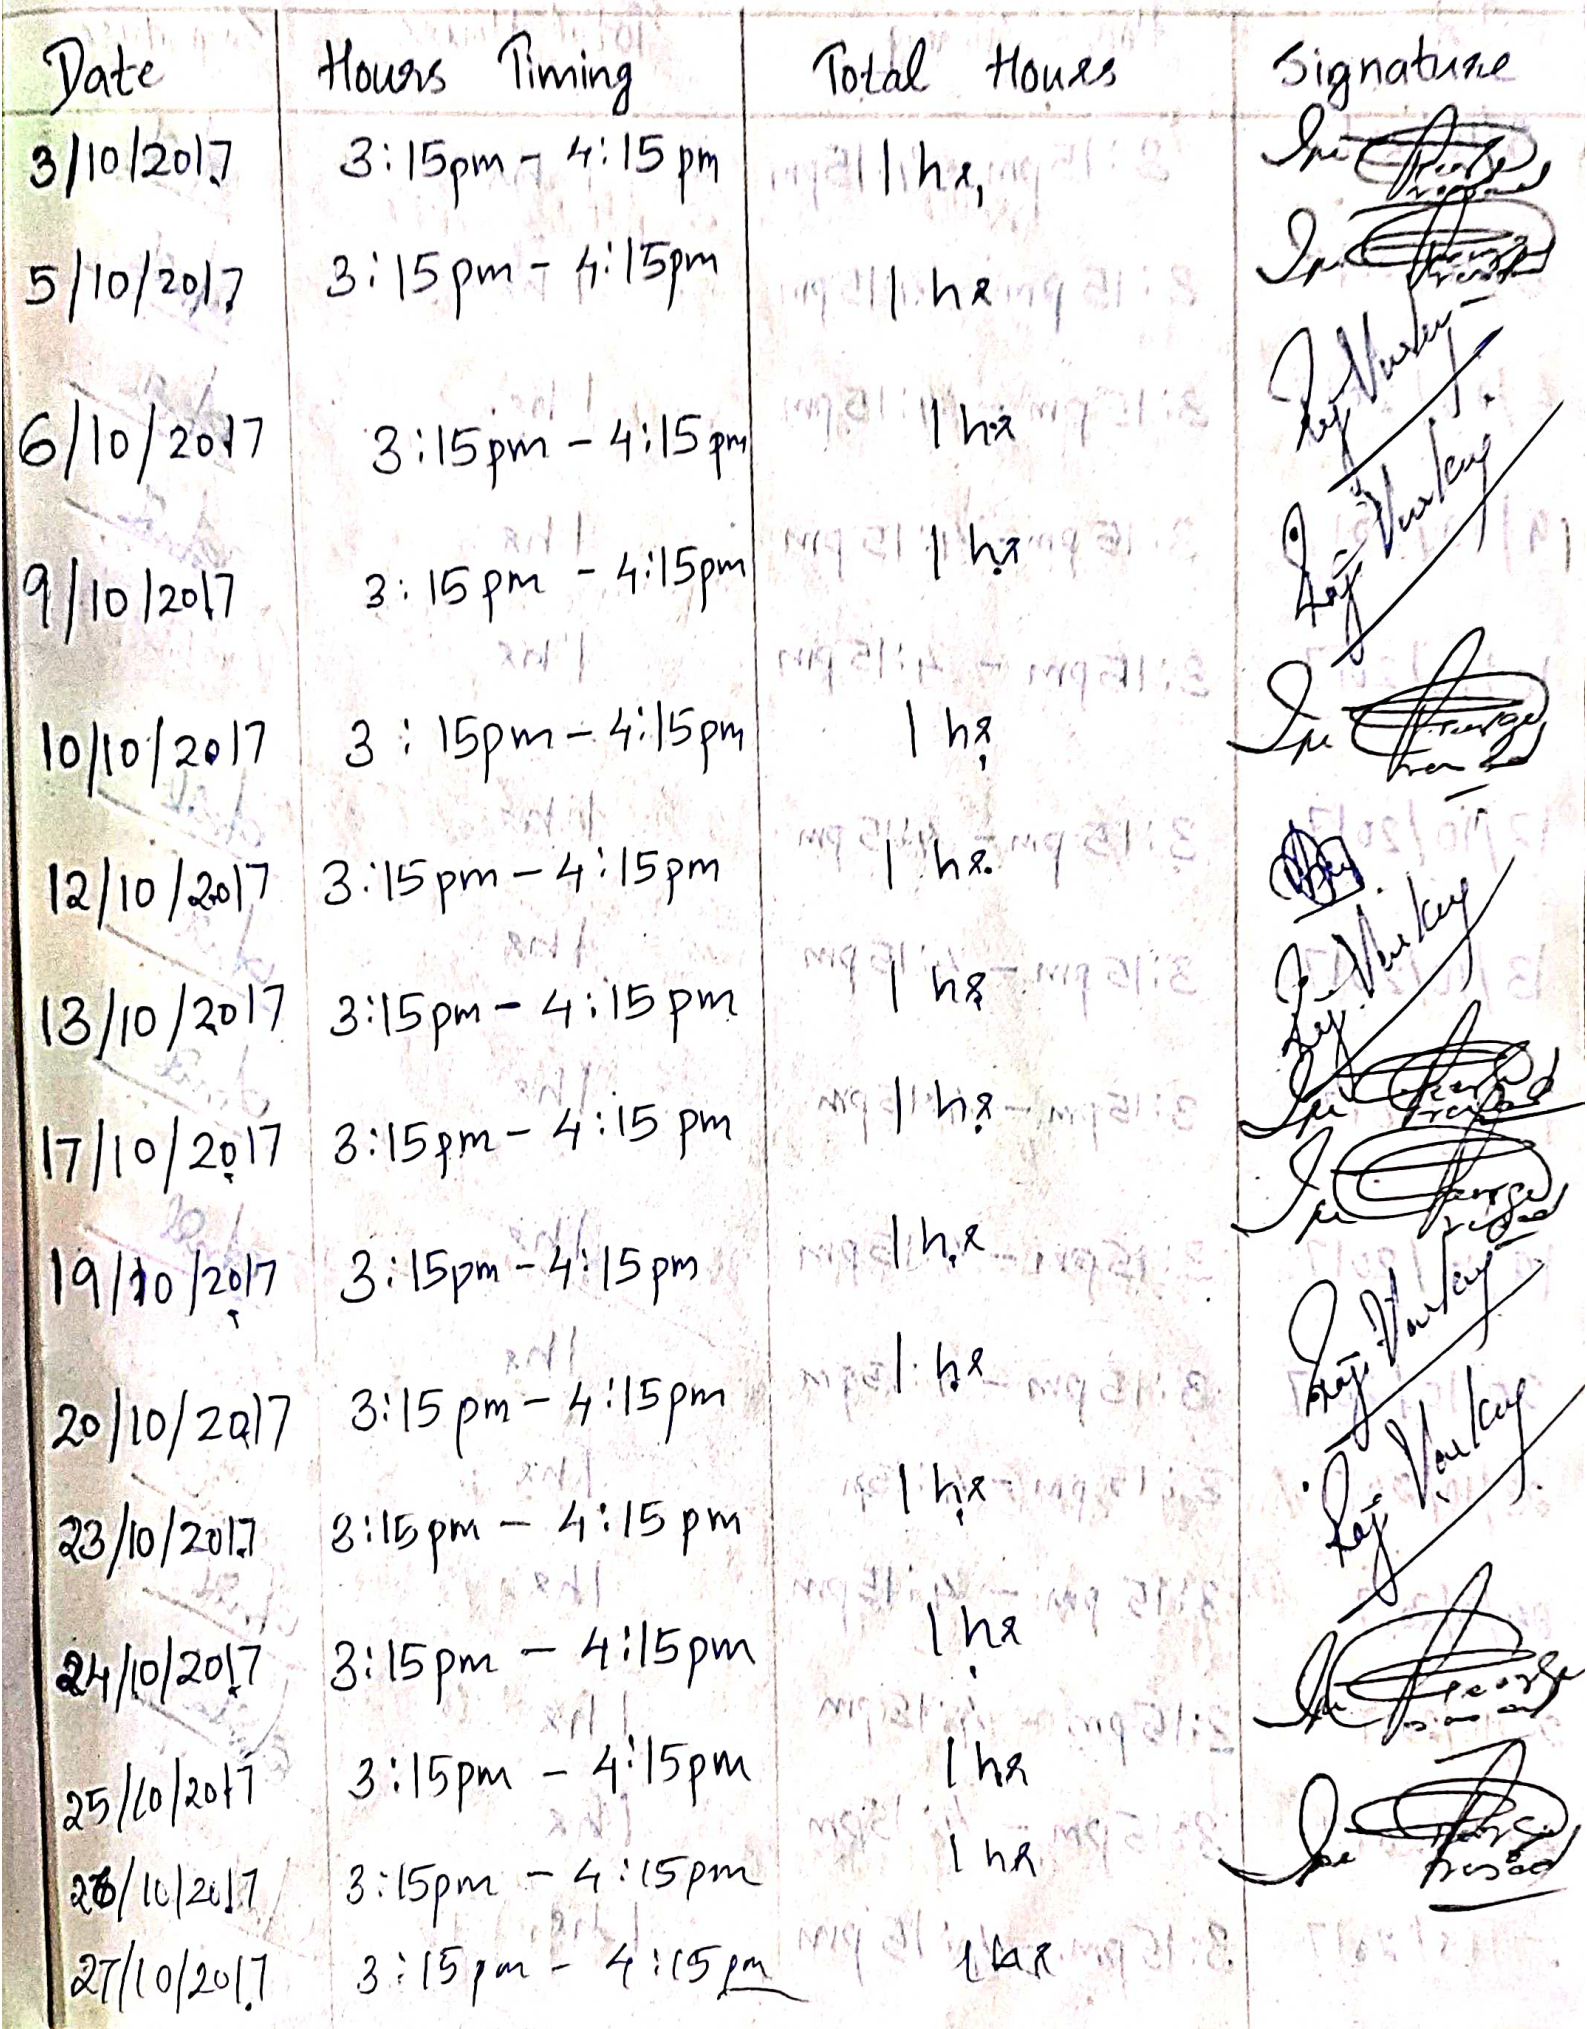 Date Hours Timing Total Hours Signature
3/10/2017 3:15pm - 4:15 pm 1 hr,
5/10/2017 3:15pm - 4:15pm 1 hr
6/10/2017 3:15pm - 4:15pm 1 hr Raji Varkey
9/10/2017 3:15pm - 4:15pm 1 hr Raji Varkey
10/10/2017 3:15pm - 4:15pm 1 hr
12/10/2017 3:15pm - 4:15pm 1 hr.
13/10/2017 3:15pm - 4:15pm 1 hr Raji Varkey
17/10/2017 3:15pm - 4:15 pm 1 hr
19/10/2017 3:15pm - 4:15pm 1 hr
20/10/2017 3:15pm - 4:15pm 1 hr Raji Varkey
23/10/2017 3:15pm - 4:15pm 1 hr Raji Varkey
24/10/2017 3:15pm - 4:15pm 1 hr George
25/10/2017 3:15pm - 4:15pm 1 hr George Prasad
26/10/2017 3:15pm - 4:15pm 1 hr
27/10/2017 3:15pm - 4:15pm 1 hr